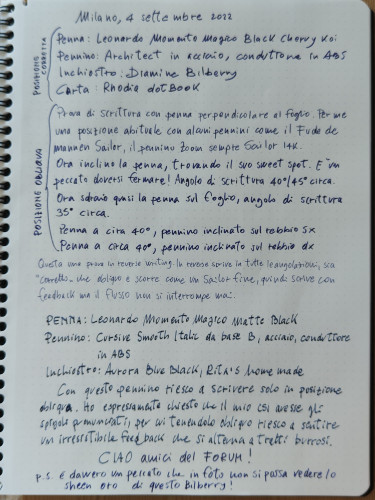 Milano, 4 settembre 2022
POSIZIONE CORRETTA
Penna: Leonardo Momento Magico Black Cherry Koi
Pennino: Architect in acciaio, conduttore in ABS
Inchiostro: Diamine Bilberry
Carta: Rhodia dotBook
POSIZIONE OBLIQUA
Prova di scrittura con penna perpendicolare al foglio. Per me
una posizione abituale con alcuni pennini come il Fude de
mannen Sailor, il pennino Zoom sempre Sailor 14K.
Ora inclino la penna, trovando il suo sweet spot. E' un
peccato doversi fermare! Angolo di scrittura 40°/45° circa.
Ora sdraio quasi la penna sul foglio, angolo di scrittura
35° circa.
Penna a circa 40°, pennino inclinato sul rebbio sx
Penna a circa 40°, pennino inclinato sul rebbio dx
Questa una prova in reverse writing. In reverse scrive in tutte le angolazioni, sia
"corretta" che obliqua e scorre come un Sailor fine, quindi scrive con
feedback ma il flusso non si interrompe mai.
PENNA: Leonardo Momento Magico Matte Black
Pennino: Cursive Smooth Italic da base B, acciaio, conduttore
in ABS
Inchiostro: Aurora Blue Black, Rita's home made
Con questo pennino riesco a scrivere solo in posizione
obliqua. Ho espressamente chiesto che il mio csi avesse gli
spigoli pronunciati, per cui tenendolo obliquo riesco a sentire
un irresistibile feedback che si alterna a tratti burrosi.
CIAO amici del FORUM!
p.s. è davvero un peccato che in foto non si possa vedere lo
sheen oro di questo Bilberry!